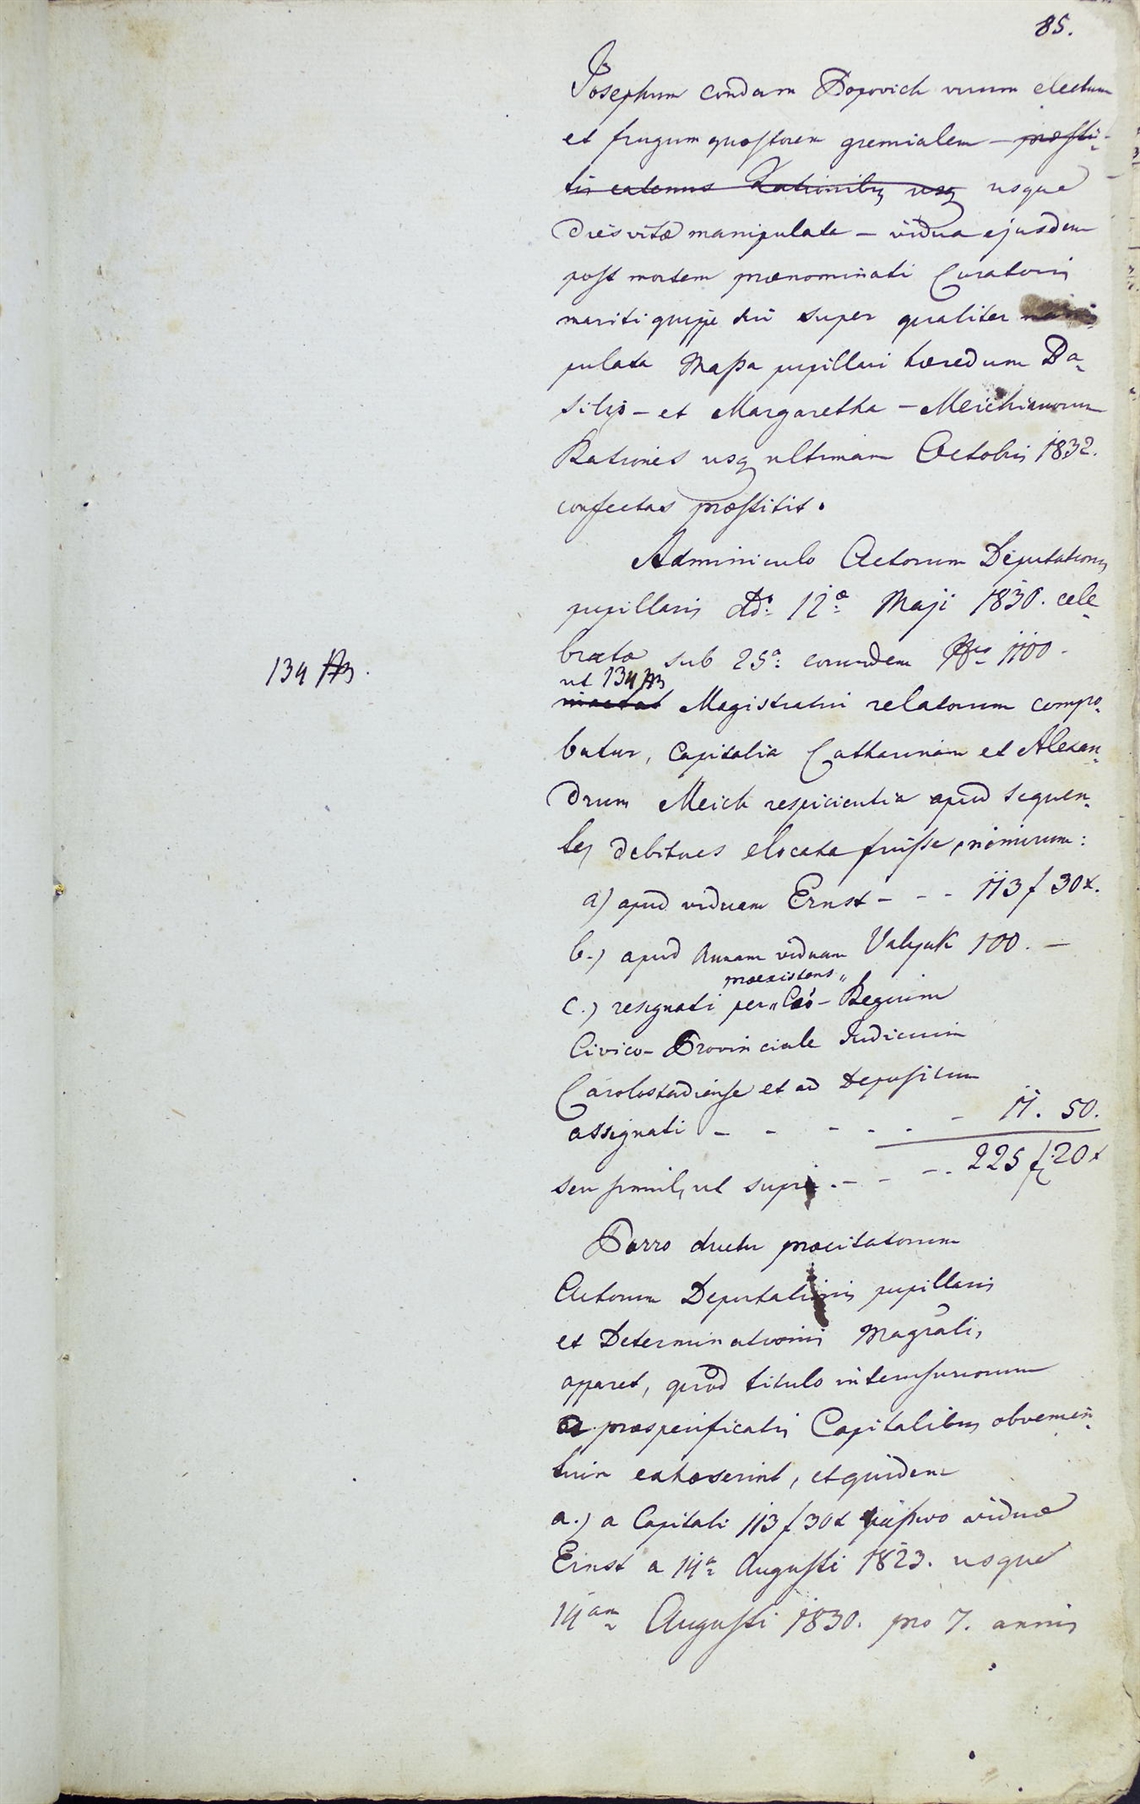 85.
Josephum condam Popovich virum electum
et frugum quæstorem gremialem – præsti-
tis eatenus Rationibq usq usque
dies vitæ manipulata – vidua ejusdem
post mortem prænominati Curatoris
mariti quippe sui super qualiter mani
pulata Massa pupillari hæredum Ba-
silii – et Margaretha – Meichianorum
Rationes usq ultimam Octobris 1832.
confectas præstitit.
Adminiculo Actorum Deputationis
pupillaris ddo 12æ Maji 1830. cele
bratæ sub 25a eorundem Nro 1100.
ut 134
134
Magistratui relatorum compro-
batur, Capitalia Catharinam et Alexan-
drum Meich respicientia apud sequen-
tes debitores elocata fuisse, nimirum:
a) apud viduam Ernst – – – 113 f 30x.
b.) apud Annam viduam Valyuk 100. –
præexistens
c.) resignati per Cæs – Regium
Civico – Provinciale Judicium
Carolostadiense et ad Depositum
assignati – – – – . – 11. 50.
seu simul, ut supra . – – – . 225 f 20x
Porro ductu præcitatorum
Actorum Deputationis pupillaris
et Determinationis Magrali,
apparet, quod titulo interusuriorum
a præspecificatis Capitalibus obvenien-
tium exhæserint, et quidem
a.) a Capitali 113 f 30x passivo viduæ
Ernst a 14a Augusti 1823. usque
14am Augusti 1830. pro 7. annis